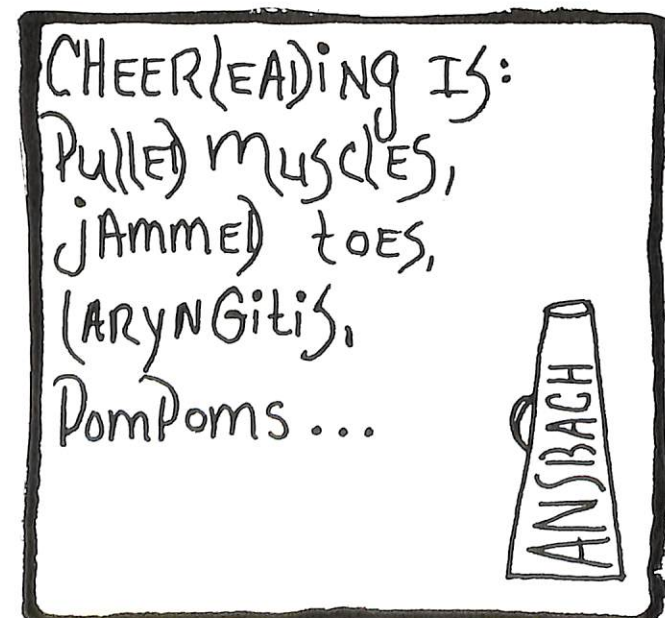 CHEERlEADiNg IS:
PullED muSclES,
jAmmED tOES,
lARyNGitiS,
PomPoms...
ANSBACH